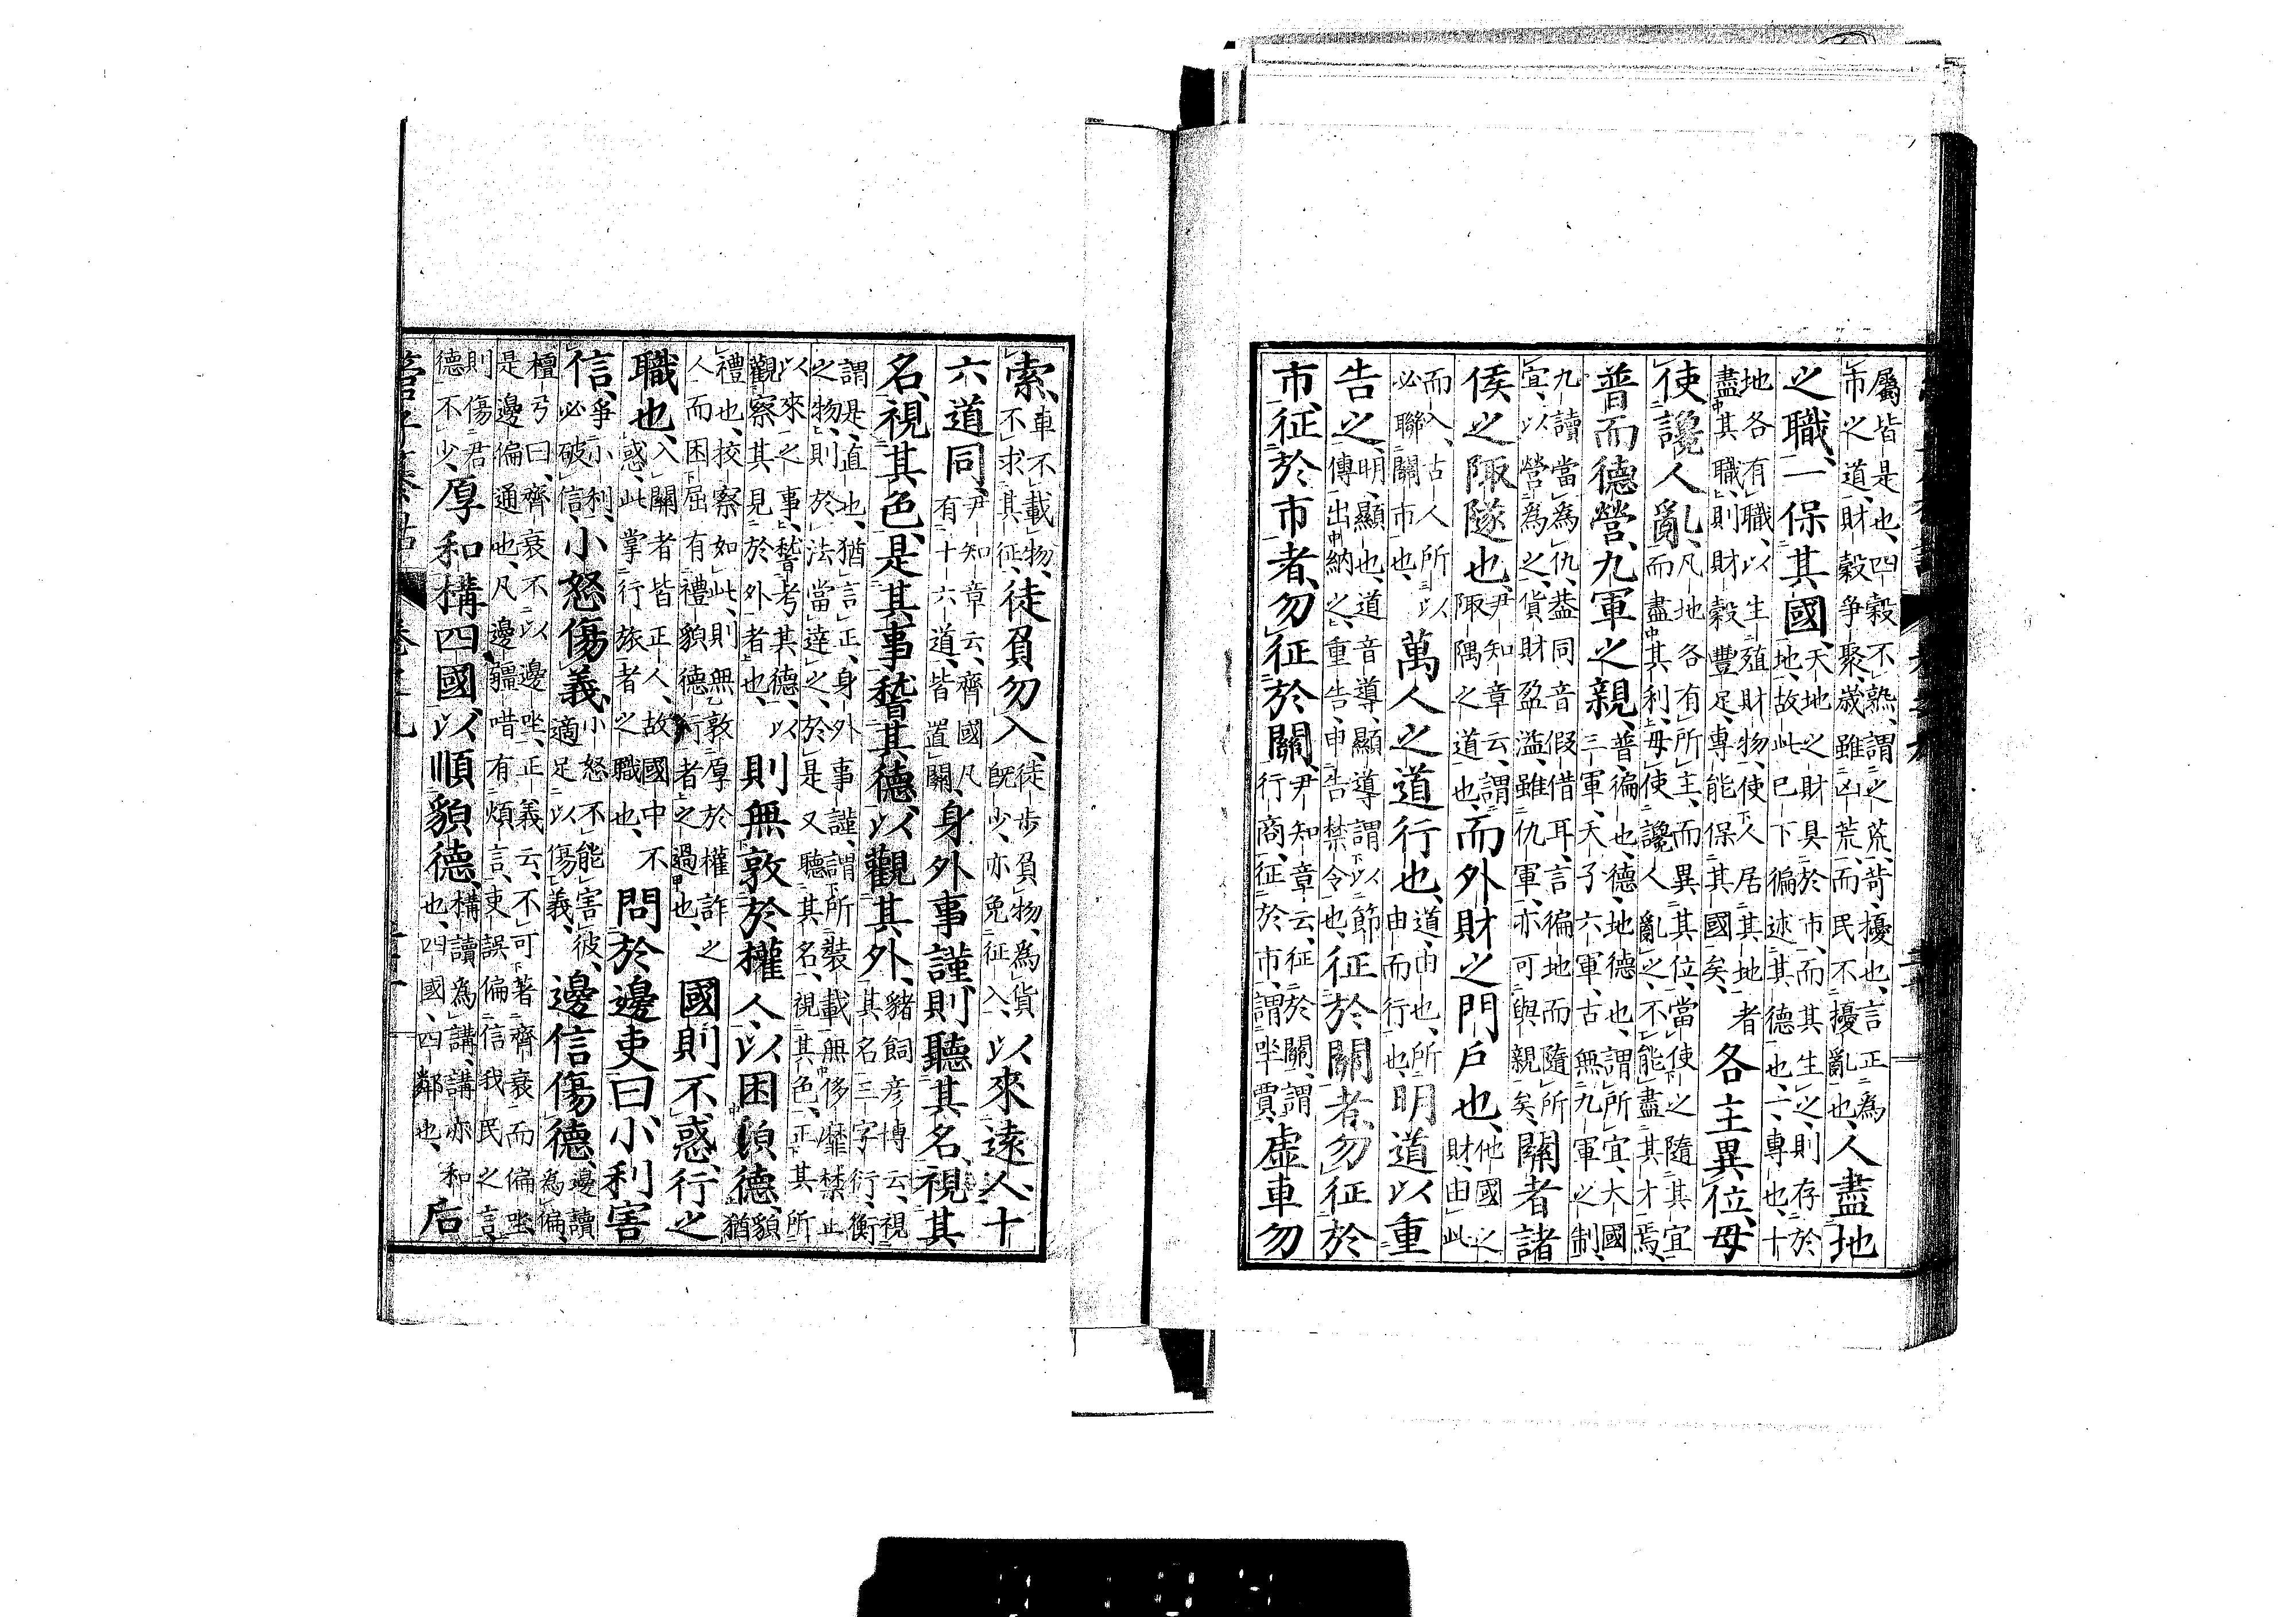 屬皆是也、四穀不熟、謂之荒、苛、擾也、言正為市之道、財穀爭聚、歲雖凶荒、而民不擾亂也、人盡地
之職、一保其國、天地之財具於市、而其生之、則存於地、故此已下徧述其德也、一、專也、十
地各有職、以生殖財物、使人居其地者盡其職、則財穀豐足、專能保其國矣、各主異位、毋
使讒人亂、凡地各有所主、而異其位、當使之隨其宜而盡其利、毋使讒人亂之、不能盡其才焉、
普而德營、九軍之親、普、徧也、德、地德也、謂所宜、大國三軍、天子六軍、古無九軍之制、
九讀當為仇、葢同音假借耳、言徧地而隨所宜、以營為之、貨財盈溢、雖仇軍、亦可與親矣、關者諸
侯之陬隧也、尹知章云、謂陬隅之道也、而外財之門戶也、他國之財、由此
而入、古人所以必聯關市也、萬人之道行也、道、由也、所由而行也、明道以重
告之、明、顯也、道音導、顯導謂以節傳出納之、重告、申告禁令也、征於關者、勿征於
市、征於市者、勿征於關、尹知章云、征於關、謂行商、征於市、謂坐賈、虛車勿
索、車不載物、不求其征、徒負勿入、徒步負物、為貨旣少、亦免征入、以來遠人、十
六道同、尹知章云、齊國凡有十六道、皆置關、身外事謹、則聽其名、視其
名、視其色、是其事、稽其德、以觀其外、豬飼彥博云、視其名三字衍、衡
謂是、直也、猶言正、身外事謹、謂所裝載無侈靡禁止之物、則於法當達之、於是又聽其名、視其色、正其所
以來之事、稽考其德、以觀察其見於外者也、則無敦於權人、以困貌德、貌猶
禮也、挍察如此、則無敦厚於權詐之人而困屈有禮貌德行者之過也、國則不惑、行之
職也、入關者皆正人、故國中不惑、此掌行旅者之職也、問於邊吏曰、小利害
信、爭小利、必破信、小怒傷義、小怒不能害彼、適足以傷義、邊信傷德、邊讀為偏、
檀弓曰、齊衰不以邊坐、正義云、不可著齊衰而偏坐是邊偏通也、凡邊疆唶有煩言、吏誤偏信我民之言、
則傷君德不少、厚和構四國、以順貌德、構讀為講、講亦和也、四國、四鄰也、后